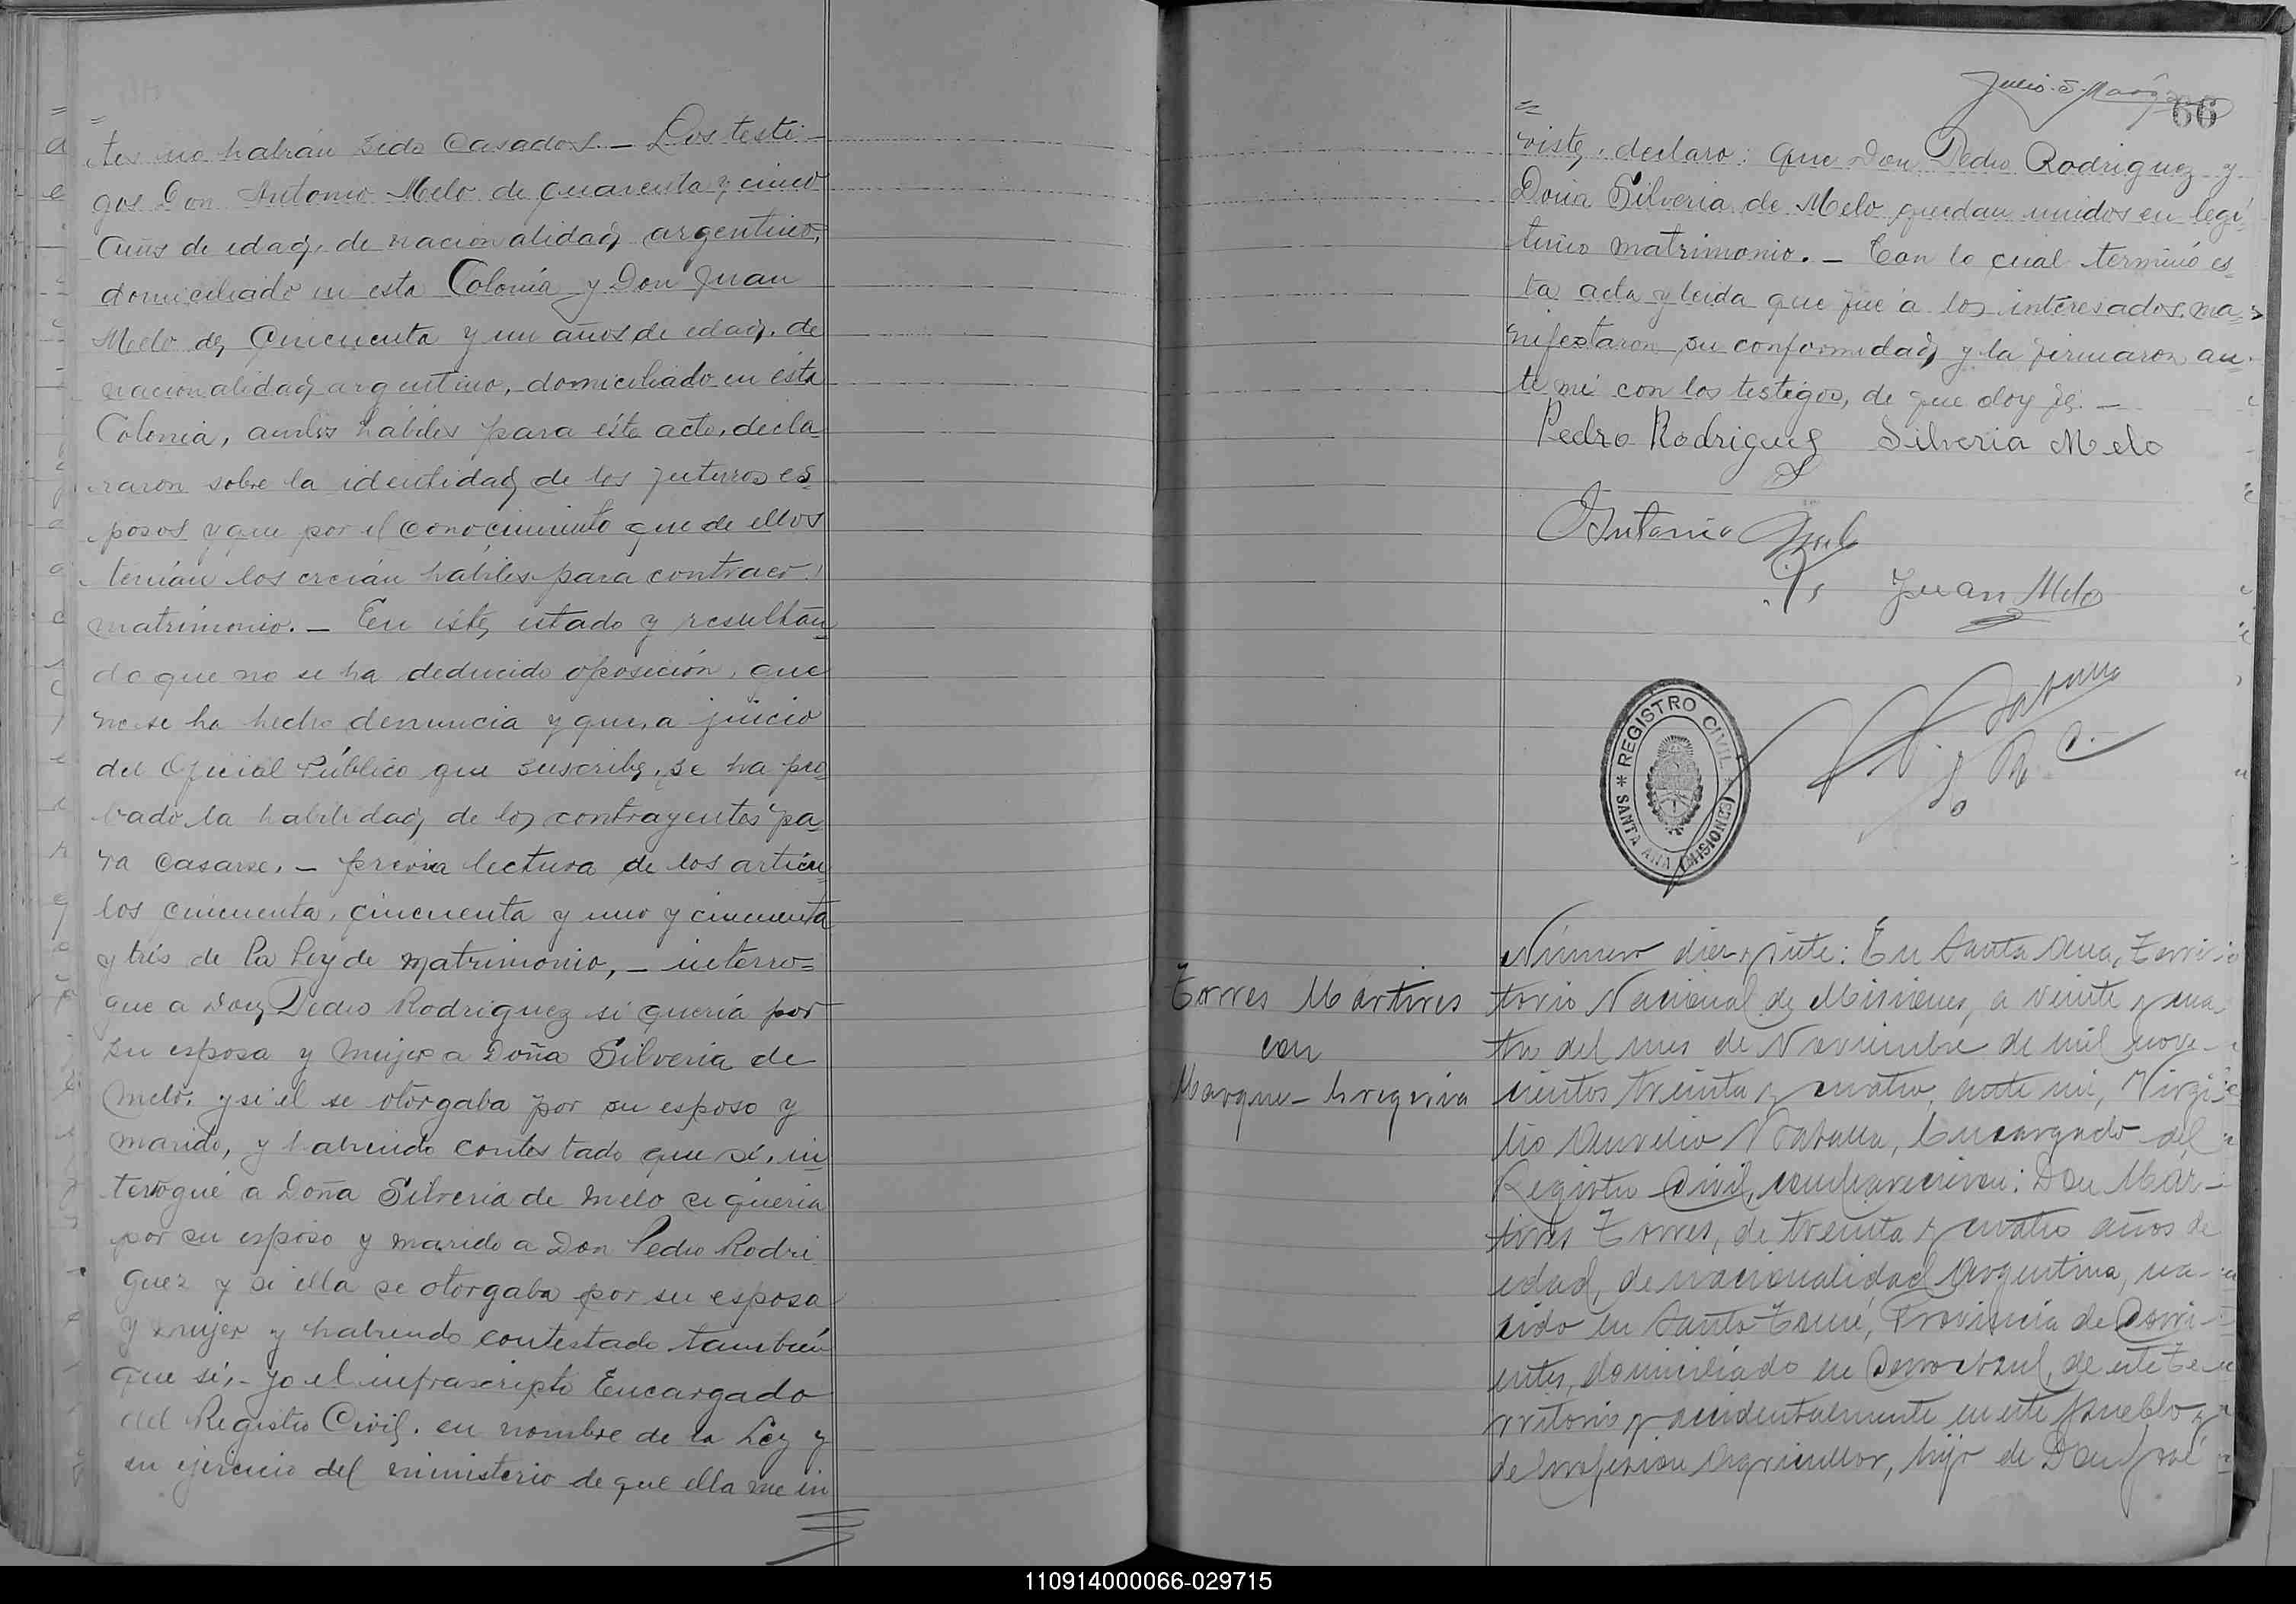 tes no habián sido casados. — Los testi-
gos Don Antonio Melo de cuarenta y cinco
años de edad, de nacionalidad argentino,
domiciliado en esta Colonia y Don Juan
Melo de, cincuenta y un años de edad, de
nacionalidad argentino, domiciliado en ésta
Colonia, ambos hábiles para éste acto, decla-
raron sobre la identidad de los futuros es-
posos y que por el conocimiento que de ellos
tenían los creían hábiles para contraer
matrimonio. — En éste, estado y resultan-
do que no se ha deducido oposición, que
no se ha hecho denuncia y que, a juicio
del Oficial Público que suscribe, se ha pro-
bado la habilidad, de los contrayentes pa-
ra casarse, — previa lectura de los artícu-
los cincuenta, cincuenta y uno y cincuenta
y trés de la Ley de matrimonio, — interro-
gue a Don, Pedro Rodriguez si quería por
su esposa y mujer a Doña Silveria de
Melo, y si él se otorgaba por su esposo y
marido, y habiendo contestado que sí, in-
terrogué a Doña Silveria de Melo si quería
por su esposo y marido a Don Pedro Rodri
guez y si ella se otorgaba por su esposa
y mujer y habiendo contestado también
que sí, - yo el infrascripto Encargado
del Registro Civil, en nombre de la Ley y
en ejercicio del ministerio de que ella me in
66
viste, declaro: que Don Pedro Rodriguez y
Doña Silveria de Melo quedan unidos en legí-
timo matrimonio. — Con lo cual terminó es-
ta acta y leída que fué a los interesados, ma-
nifestaron su conformidad, y la firmaron an-
te mí con los testigos, de que doy fé. —
Pedro Rodriguez Silveria Melo
Antonio Melo
Juan Melo
REGISTRO CIVIL
SANTA ANA (MISIONES)
Torres Mártires
con
Marques Gregoria
Número diez y siete: En Santa Ana, Terri-
torio Nacional de Misiones, a veinte y cua-
tro del mes de Noviembre de mil nove-
cientos treinta y cuatro, ante mí, Virgi-
lio Aurelio Encargado del
Registro Civil, comparecieron: Don Már-
tires Torres, de treinta y cuatro años de
edad, de nacionalidad Argentina, na-
cido en Santo Tomé, Provincia de Corri-
entes, domiciliado en Cerro Azul, de este Te-
rritorio y accidentalmente en este pueblo y
de profesión Agricultor, hijo de Don José
110914000066-029715